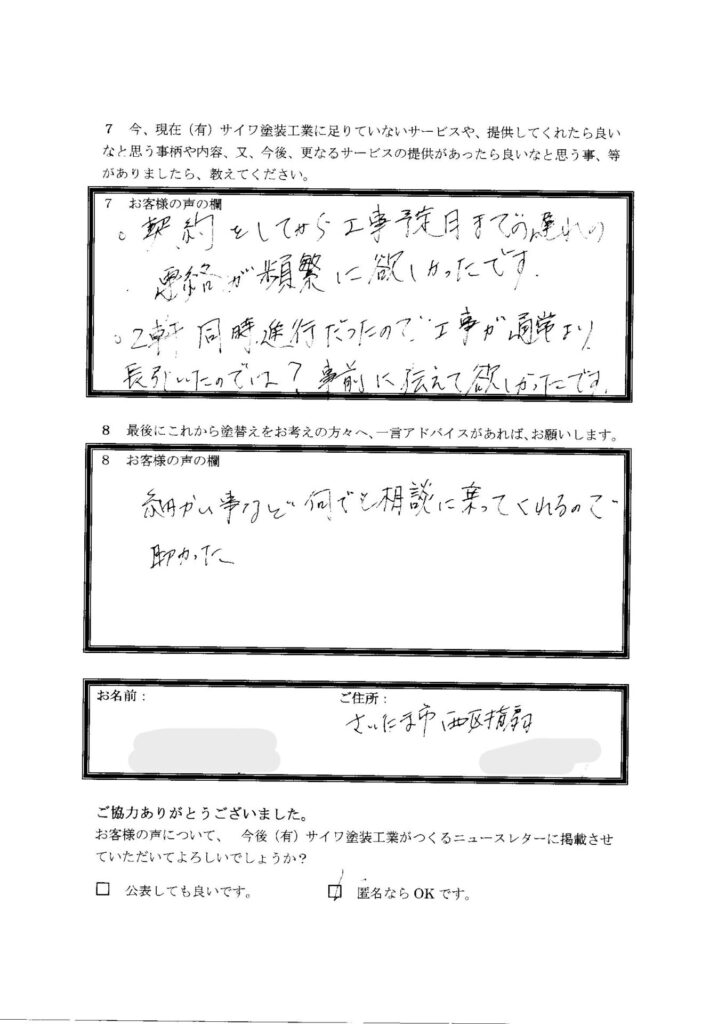 7 今、現在（有）サイワ塗装工業に足りていないサービスや、提供してくれたら良い
なと思う事柄や内容、又、今後、更なるサービスの提供があったら良いなと思う事、等
がありましたら、教えてください。
7 お客様の声の欄
。契約をしてから工事予定日までの遅れの
連絡が頻繁に欲しかったです.
。2軒同時進行だったので工事が通常より
長引いたのでは？事前に伝えて欲しかったです.
8 最後にこれから塗替えをお考えの方々へ、一言アドバイスがあれば、お願いします。
8 お客様の声の欄
細かい事など何でも相談に乗ってくれるので
助かった
お名前：
ご住所：
さいたま市西区指扇
ご協力ありがとうございました。
お客様の声について、 今後（有）サイワ塗装工業がつくるニュースレターに掲載させ
ていただいてよろしいでしょうか？
□ 公表しても良いです。
☑ 匿名なら OK です。